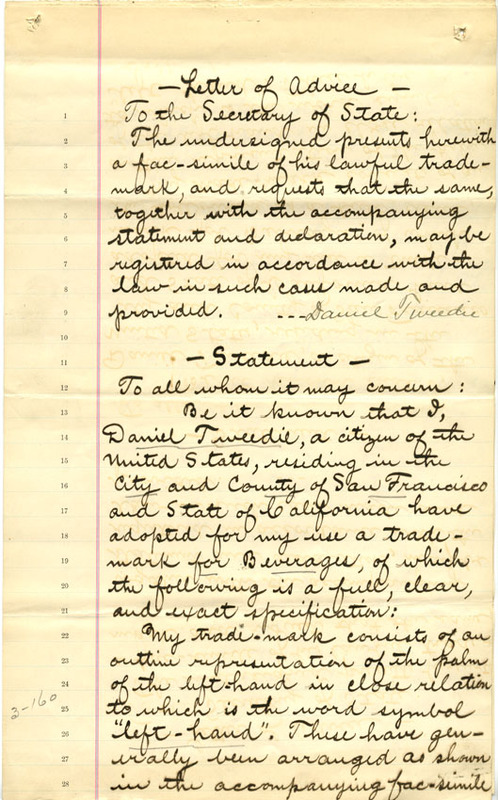 — Letter of Advice —
1 To the Secretary of State:
2 The undersigned presents herewith
3 a fac-simile of his lawful trade-
4 mark, and requests that the same,
5 together with the accompanying
6 statement and declaration, may be
7 registered in accordance with the
8 law in such cases made and
9 provided. ---Daniel Tweedie
10
11 — Statement —
12 To all whom it may concern:
13 Be it known that I,
14 Daniel Tweedie, a citizen of the
15 United States, residing in the
16 City and County of San Francisco
17 and State of California have
18 adopted for my use a trade-
19 mark for Beverages, of which
20 the following is a full, clear,
21 and exact specification:
22 My trade-mark consists of an
23 outline representation of the palm
24 of the left hand in close relation
3-160 25 to which is the word symbol
26 "left-hand". These have gen-
27 erally been arranged as shown
28 in the accompanying fac-simile